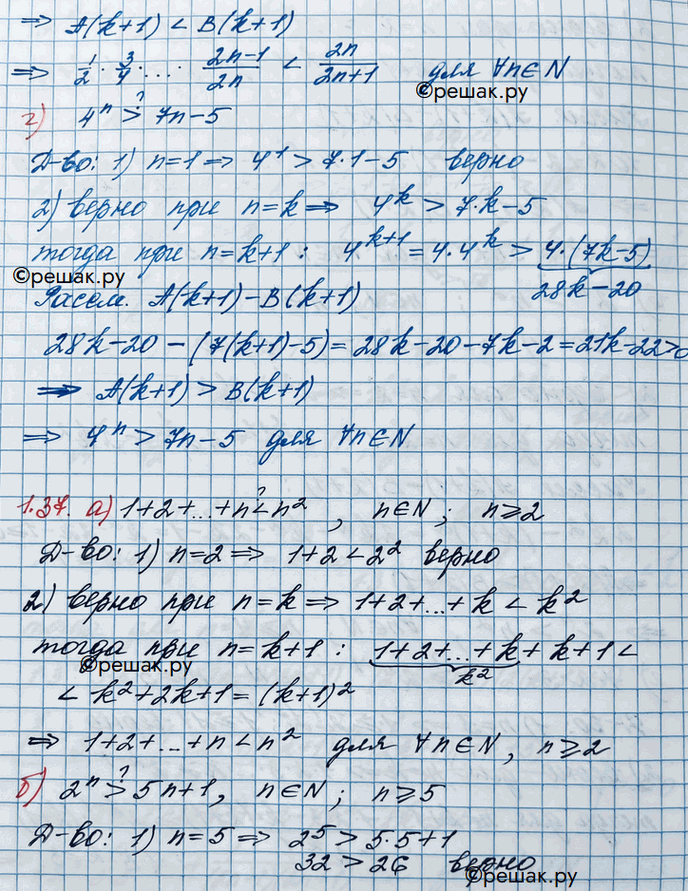 ⇒ A(k+1) < B(k+1)
⇒ 1/2 · 3/4 · ... · (2n-1)/2n < 2n/(2n+1) для ∀n∈N
©решак.ру
г) 4ⁿ >? 7n-5
Д-во: 1) n=1 ⇒ 4¹ > 7·1-5 верно
2) верно при n=k ⇒ 4ᵏ > 7·k-5
тогда при n=k+1 : 4ᵏ⁺¹ = 4·4ᵏ > 4·(7k-5)
©решак.ру
Рассм. A(k+1) - B(k+1) 28k-20
28k-20 - (7(k+1)-5) = 28k-20-7k-2 = 21k-22>0
⇒ A(k+1) > B(k+1)
⇒ 4ⁿ > 7n-5 для ∀n∈N
1.37. а) 1+2+...+n <? n², n∈N; n⩾2
Д-во: 1) n=2 ⇒ 1+2 < 2² верно
2) верно при n=k ⇒ 1+2+...+k < k²
тогда при n=k+1 : 1+2+...+k + k+1 <
©решак.ру k²
< k²+2k+1 = (k+1)²
⇒ 1+2+...+n < n² для ∀n∈N, n⩾2
б) 2ⁿ >? 5n+1, n∈N; n⩾5
Д-во: 1) n=5 ⇒ 2⁵ > 5·5+1
32 > 26 верно
©решак.ру